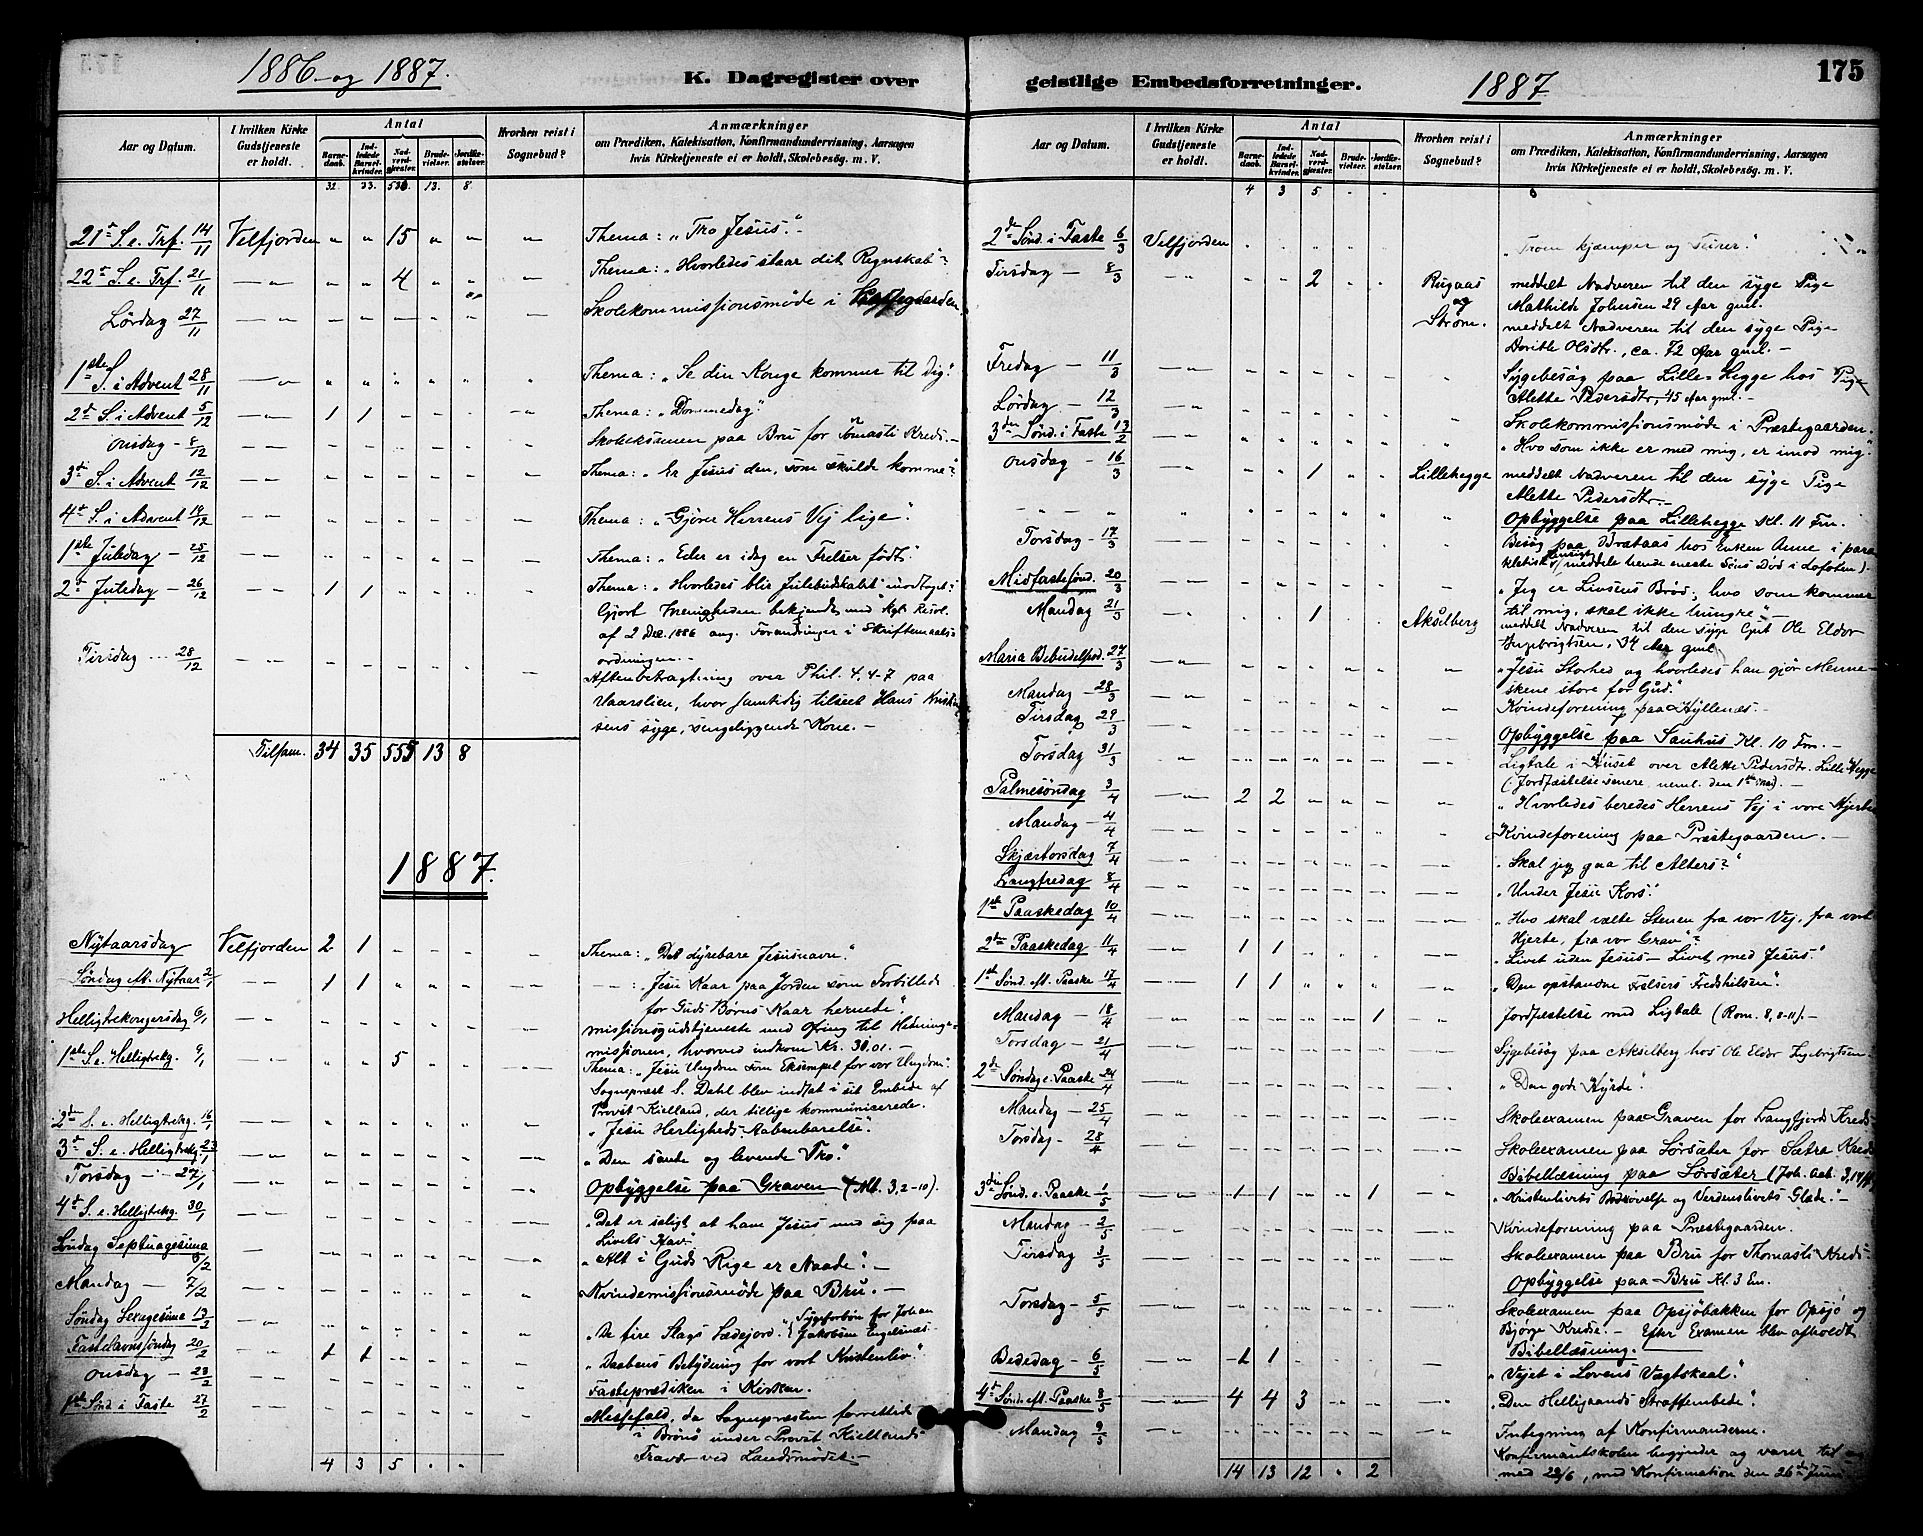 1886 og 1887.
K. Dagregister over
Aar og Datum.
I hvilken Kirke Gudstjeneste er holdt.
Antal
Barnedaab.
Indledede Barselkvinder.
Nadverdgjæster.
Brudevielser.
Jordfæstelser.
Hvorhen reist i Sognebud?
Anmærkninger
om Prædiken, Katekisation, Konfirmandundervisning, Aarsagen
hvis Kirketjeneste ei er holdt, Skolebesøg. m. V.
32. 33. 13. 8.
21de S. e. Trf. 14/11 Velfjorden " " 15 " " — Thema: "Tro Jesus."
22de S. e. Trf. 21/11 — " — " " 4 " " — Thema: "Hvorledes staar dit Regnskab"?
Lørdag 27/11 — " — Skolekommissionsmøde i
1ste S. i Advent 28/11 — " — Thema: "Se din Konge kommer til dig".
2de S. i Advent 5/12 — " — 1 1 Thema: "Dommedag".
Onsdag — 8/12 Skoleeksamen paa Bru for Tomasti Kreds.
3de S. i Advent 12/12 Thema: "Er Jesus den, som skulde komme"?
4de S. i Advent 19/12 Thema: "Gjører Herrens Vej lige".
1ste Juledag — 25/12 Thema: "Eder er idag en Frelser født"
2de Juledag — 26/12 1 1 Thema: "Hvorledes blir Julebudskabet modtaget"
Gjort Menigheden bekjendt med Kgl. Resol.
af 2 Dec. 1886 ang. Forandringer i Skriftemaals-
ordningen. —
Tirsdag 28/12 Aftenbetragtning over Phil. 4, 4-7 paa
Vaarslien, hvor samtidig tilseet Hans Kristi-
sens syge, sengeliggende Kone. —
Tilsam. 34 35 555 13 8
1887.
Nytaarsdag Velfjorden 2 1 Thema: "Det dyrebare Jesusnavn".
Søndag eft. Nytaar 2/1 1 1 — " — : "Jesu Kaar paa Jorden som Forbillede
for Guds Børns Kaar hernede".
Helligtrekongersdag 6/1 missionsgudstjeneste med Ofring til Hednings-
missionen, hvorved indkom Kr. 30.01. —
1ste S. e. Helligtrekg. 9/1 5 Thema: "Jesu Ungdom som Eksempel for vor Ungdom"
Sogneprest S. Dahl blev indsat i sit Embede af
Provst Kielland, der tillige kommunicerede.
2den S. e. Helligtrekg. 16/1 "Jesu Herligheds Aabenbarelse".
3de S. e. Helligtrekg 23/1 "Den sande og levende Tro".
Torsdag — 27/1 Opbyggelse paa Graven (Mt. 3, 2-10).
4de S. e. Helligtrekg. 30/1 "Det er saligt at have Jesus med sig paa
Livets Hav"
Søndag Septuagesima 6/2 "Alt i Guds Rige er Naade". —
Mandag — 7/2 Kvindemissionsmøde paa Bru. —
Søndag Sexagesima 13/2 "De fire Slags Sædejord". Sygeforbøn for Johan Jakobsen
Fastelavnssøndag 20/2 1 1 "Daabens Betydning for vort Kristenliv".
Onsdag — 23/2 Fasteprædiken i Kirken.
1ste Sønd i Faste 27/2 Messefald, da Sognepræsten forrettede
i Brønø under Provst Kiellands
Fravær ved Landsmødet —
4 3 5 " "
geistlige Embedsforretninger.
1887
175
Aar og Datum.
I hvilken Kirke Gudstjeneste er holdt.
Antal
Barnedaab.
Indledede Barselkvinder.
Nadverdgjæster.
Brudevielser.
Jordfæstelser.
Hvorhen reist i Sognebud?
Anmærkninger
om Prædiken, Katekisation, Konfirmandundervisning, Aarsagen
hvis Kirketjeneste ei er holdt, Skolebesøg. m. V.
4 3 5 - -
2de Sønd. i Faste 6/3 Velfjorden "Troen kjæmper og Seirer".
Tirsdag — 8/3 2 Rugaas og Strøm. meddelt Nadveren til den syge Pige
Mathilde Johnsen 29 Aar gml.
meddelt Nadveren til den syge Pige
Dorithe Olsdtr., ca. 72 Aar gml. —
Fredag — 11/3 Sygebesøg paa Lille-Hegge hos Pige
Alette Pedersdtr, 45 Aar gml. —
Lørdag — 12/3 Skolekommissionsmøde i Præstegaarden.
3den Sønd. i Faste 13/2 "Hvo som ikke er med mig, er imod mig".
Onsdag — 16/3 1 Lillehegge meddelt Nadveren til den syge Pige
Alette Pedersdtr. —
— " — Opbyggelse paa Lillehegge Kl. 11 Fm.
Torsdag — 17/3 Besøg paa Brataas hos Enken Anne i para-
kletisk Hensigt (meddelte hende eneste Søns Død i Lofoten).
Midfastesønd. 20/3 "Jeg er Livsens Brød, hvo som kommer
til mig, skal ikke hungre". —
Mandag 21/3 1 Akselberg meddelt Nadveren til den syge Gut Ole Eldor
Ingebrigtsen, 34 Aar gml.
Maria Bebudelsesd. 27/3 "Jesu Storhed og hvorledes han gjør Menne-
skene store for Gud".
Mandag — 28/3 Kvindeforening paa Hyllenes. —
Tirsdag 29/3 Opbyggelse paa Sauhus Kl. 10 Fm. —
Torsdag 31/3 Ligtale i Huset over Alette Pedersdtr. Lille Hegge
(Jordfæstelse senere, neml. den 1ste Mai). —
Palmesøndag 3/4 2 2 "Hvorledes beredes Herrens Vej i vore Hjerter
Mandag — 4/4 Kvindeforening paa Præstegaarden. —
Skjærtorsdag 7/4 "Skal jeg gaa til Alters?"
Langfredag 8/4 "Under Jesu Kors".
1ste Paaskedag 10/4 "Hvo skal vælte Stenen fra vor Vej, fra vort
Hjerte, fra vor Grav"?
2den Paaskedag — 11/4 1 1 "Livet uden Jesus — Livet med Jesus".
1ste Sønd. eft. Paaske 17/4 1 1 "Den opstandne Frelsers Fredshilsen".
Mandag — 18/4 1 Jordfæstelse med Ligtale (Rom. 8, 8-11). —
Torsdag — 21/4 Sygebesøg paa Akselberg hos Ole Eldor Ingebrigtsen
2den Søndag e. Paaske 24/4 "Den gode Hyrde".
Mandag — 25/4 Skoleexamen paa Graven for Langfjords Kreds.
Torsdag — 28/4 Skoleexamen paa Sørsæter for Sætra Kreds
Bibellæsning paa Sørsæter (Joh. Aab. 3, 14 ff)
3die Sønd. e. Paaske 1/5 1 1 1 "Kristenlivets Bedrøvelse og Verdenslivets Glæde". —
Mandag — 2/5 Kvindeforening paa Præstegaarden.
Tirsdag 3/5 Skoleexamen paa Bru for Thomasti Kreds
Opbyggelse paa Bru Kl. 3 Em.
Torsdag — 5/5 Skoleexamen paa Opsjøbakken for Opsjø og
Bjørge Kredse. — Efter Examen blev afholdt
Bibellæsning.
Bededag — 6/5 1 1 "Vejet i Lovens Vægtskaal".
4de Sønd. eft. Paaske 8/5 4 4 3 "Den Helligaands Straffembede".
Mandag 9/5 Indtegning af Konfirmanderne.
Konfirmantskolen begynder og varer til
med 22/6, med Konfirmation den 26de Juni
14 13 12 " 2